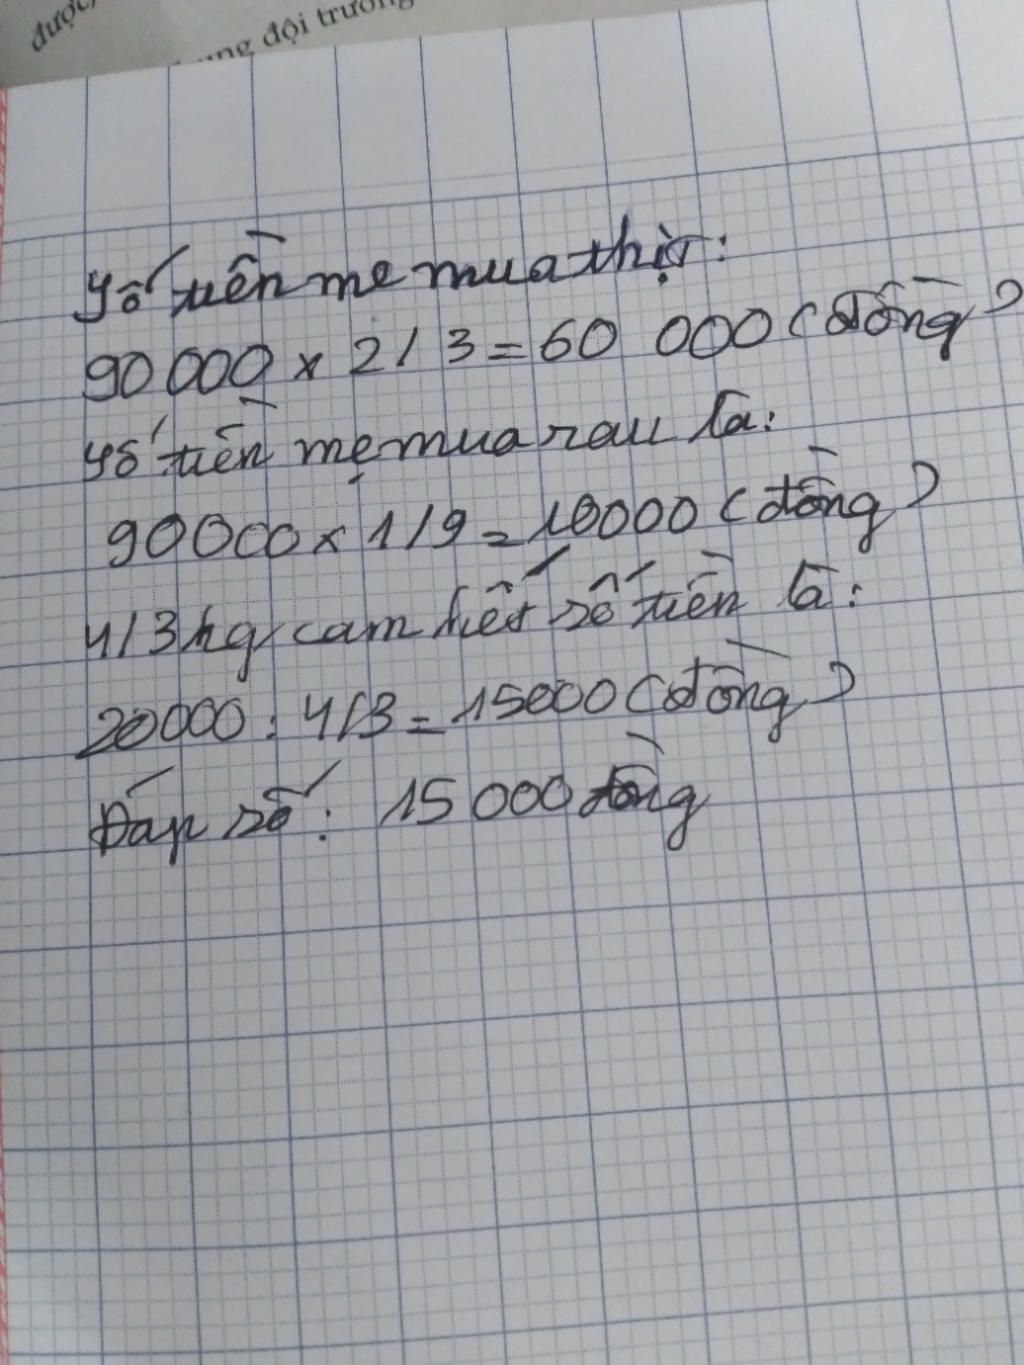 được,
ung đội trưởng
Số tiền mẹ mua thịt:
90 000 x 2/3 = 60 000 (đồng)
Số tiền mẹ mua rau là:
90000 x 1/9 = 10000 (đồng)
4/3 kg cam hết số tiền là:
20000 : 4/3 = 15000 (đồng)
Đáp số: 15 000 đồng